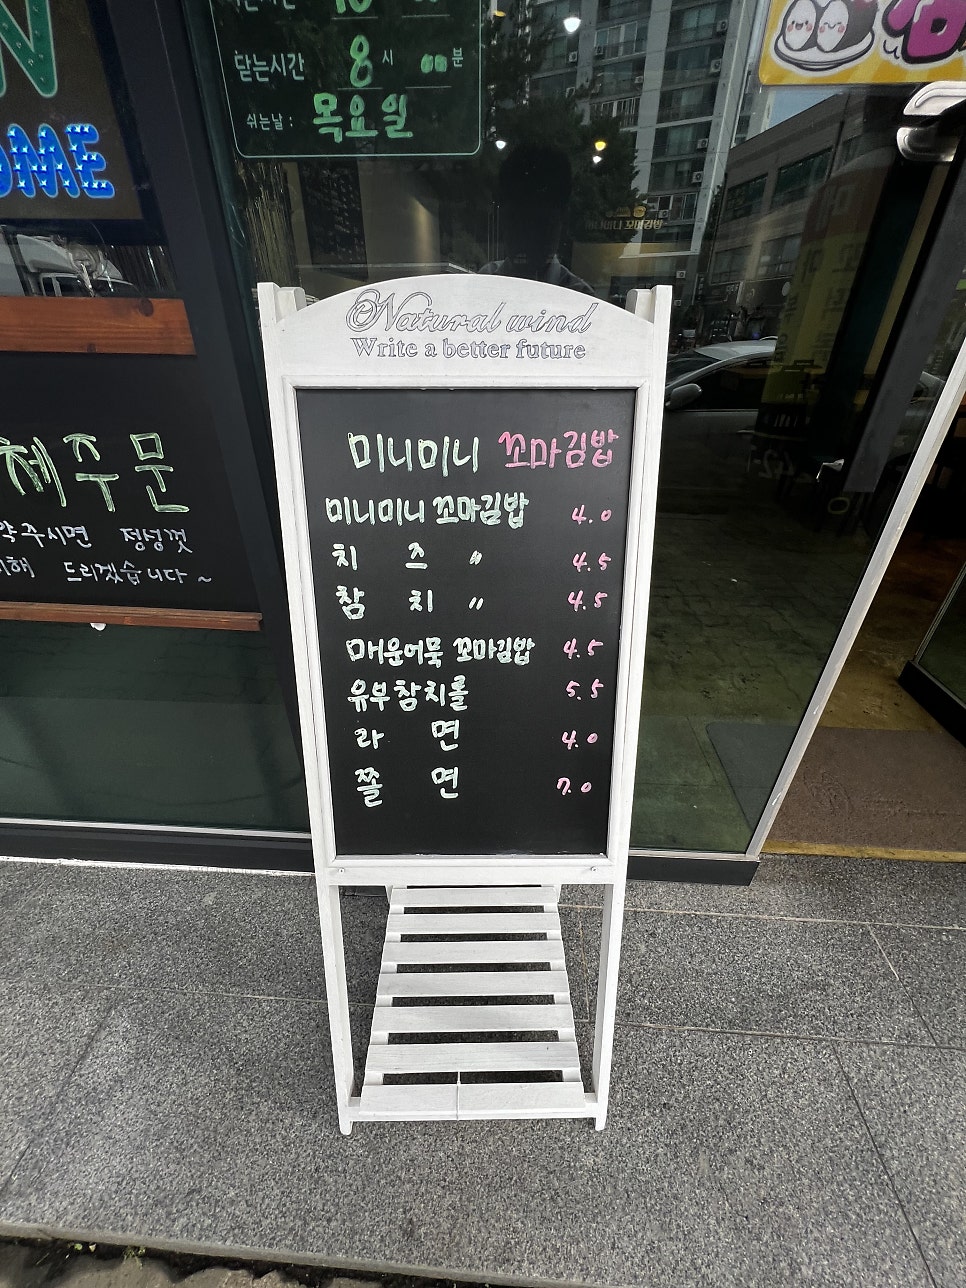 닫는시간 8시 00분
쉬는날 : 목요일
Natural wind
Write a better future
미니미니 꼬마김밥
미니미니 꼬마김밥 4.0
치 즈 〃 4.5
참 치 〃 4.5
매운어묵 꼬마김밥 4.5
유부참치롤 5.5
라 면 4.0
쫄 면 7.0
체주문
주시면 정성껏
드리겠습니다~